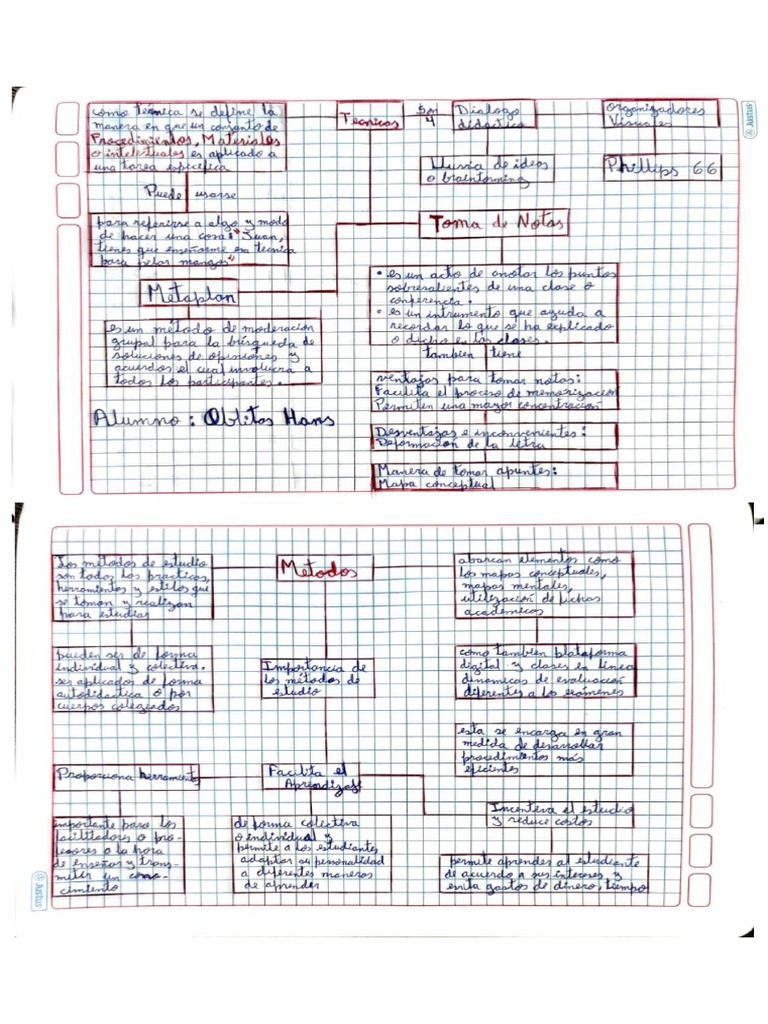 como técnica se define la
manera en que un conjunto de
Procedimientos, Materiales
o intelectuales es aplicado a
una tarea específica
Tecnicas
son
4
Dialogo
didactico
organizadores
Visuales
Lluvia de ideas
o braintorming
Phillips 66
Puede usarse
para referirse a algo y modo
de hacer una cosa: "Juan,
tienes que enseñarme esa tecnica
para pelar mangos"
Toma de Notas
Metaplan
es un método de moderación
grupal para la búsqueda de
soluciones de opiniones y
acuerdos el cual involucra a
todos los participantes.
• es un acto de anotar los puntos
sobresalientes de una clase o
conferencia.
• es un intrumento que ayuda a
recordar lo que se ha explicado
o dicho en las clases.
tambien tiene
ventajas para tomar notas:
Facilita el proceso de memorización
Permiten una mayor concentración
Desventajas e inconvenientes:
Deformación de la letra
Manera de tomar apuntes:
Mapa conceptual
Alumno: Oblitas Hans
Justus
Los métodos de estudio
son todos los practicos,
herramientos y estilos que
se toman y realizan
para estudiar
Metodos
abarcan elementos como
los mapas conceptuales,
mapas mentales,
utilización de fichas
académicos
pueden ser de forma
individual y colectiva.
ser aplicados de forma
autodidactica o por
cuerpos colegiados
Importancia de
los métodos de
estudio
como tambien plataforma
digital y clases en linea
dinamicas de evaluación
diferentes a los exámenes
esta se encarga en gran
medida de desarrollar
procedimientos más
eficientes
Proporciona herramienta
Facilita el
Aprendizaje
Incentiva el estudio
y reduce costos
importante para los
facilitadores o pro-
fesores a la hora
de enseñar y trans-
mitir un cono-
cimiento
de forma colectiva
o individual y
permite a los estudiantes
adaptar su personalidad
a diferentes maneras
de aprender
permite aprender al estudiante
de acuerdo a sus intereses y
evita gastos de dinero, tiempo
Justus